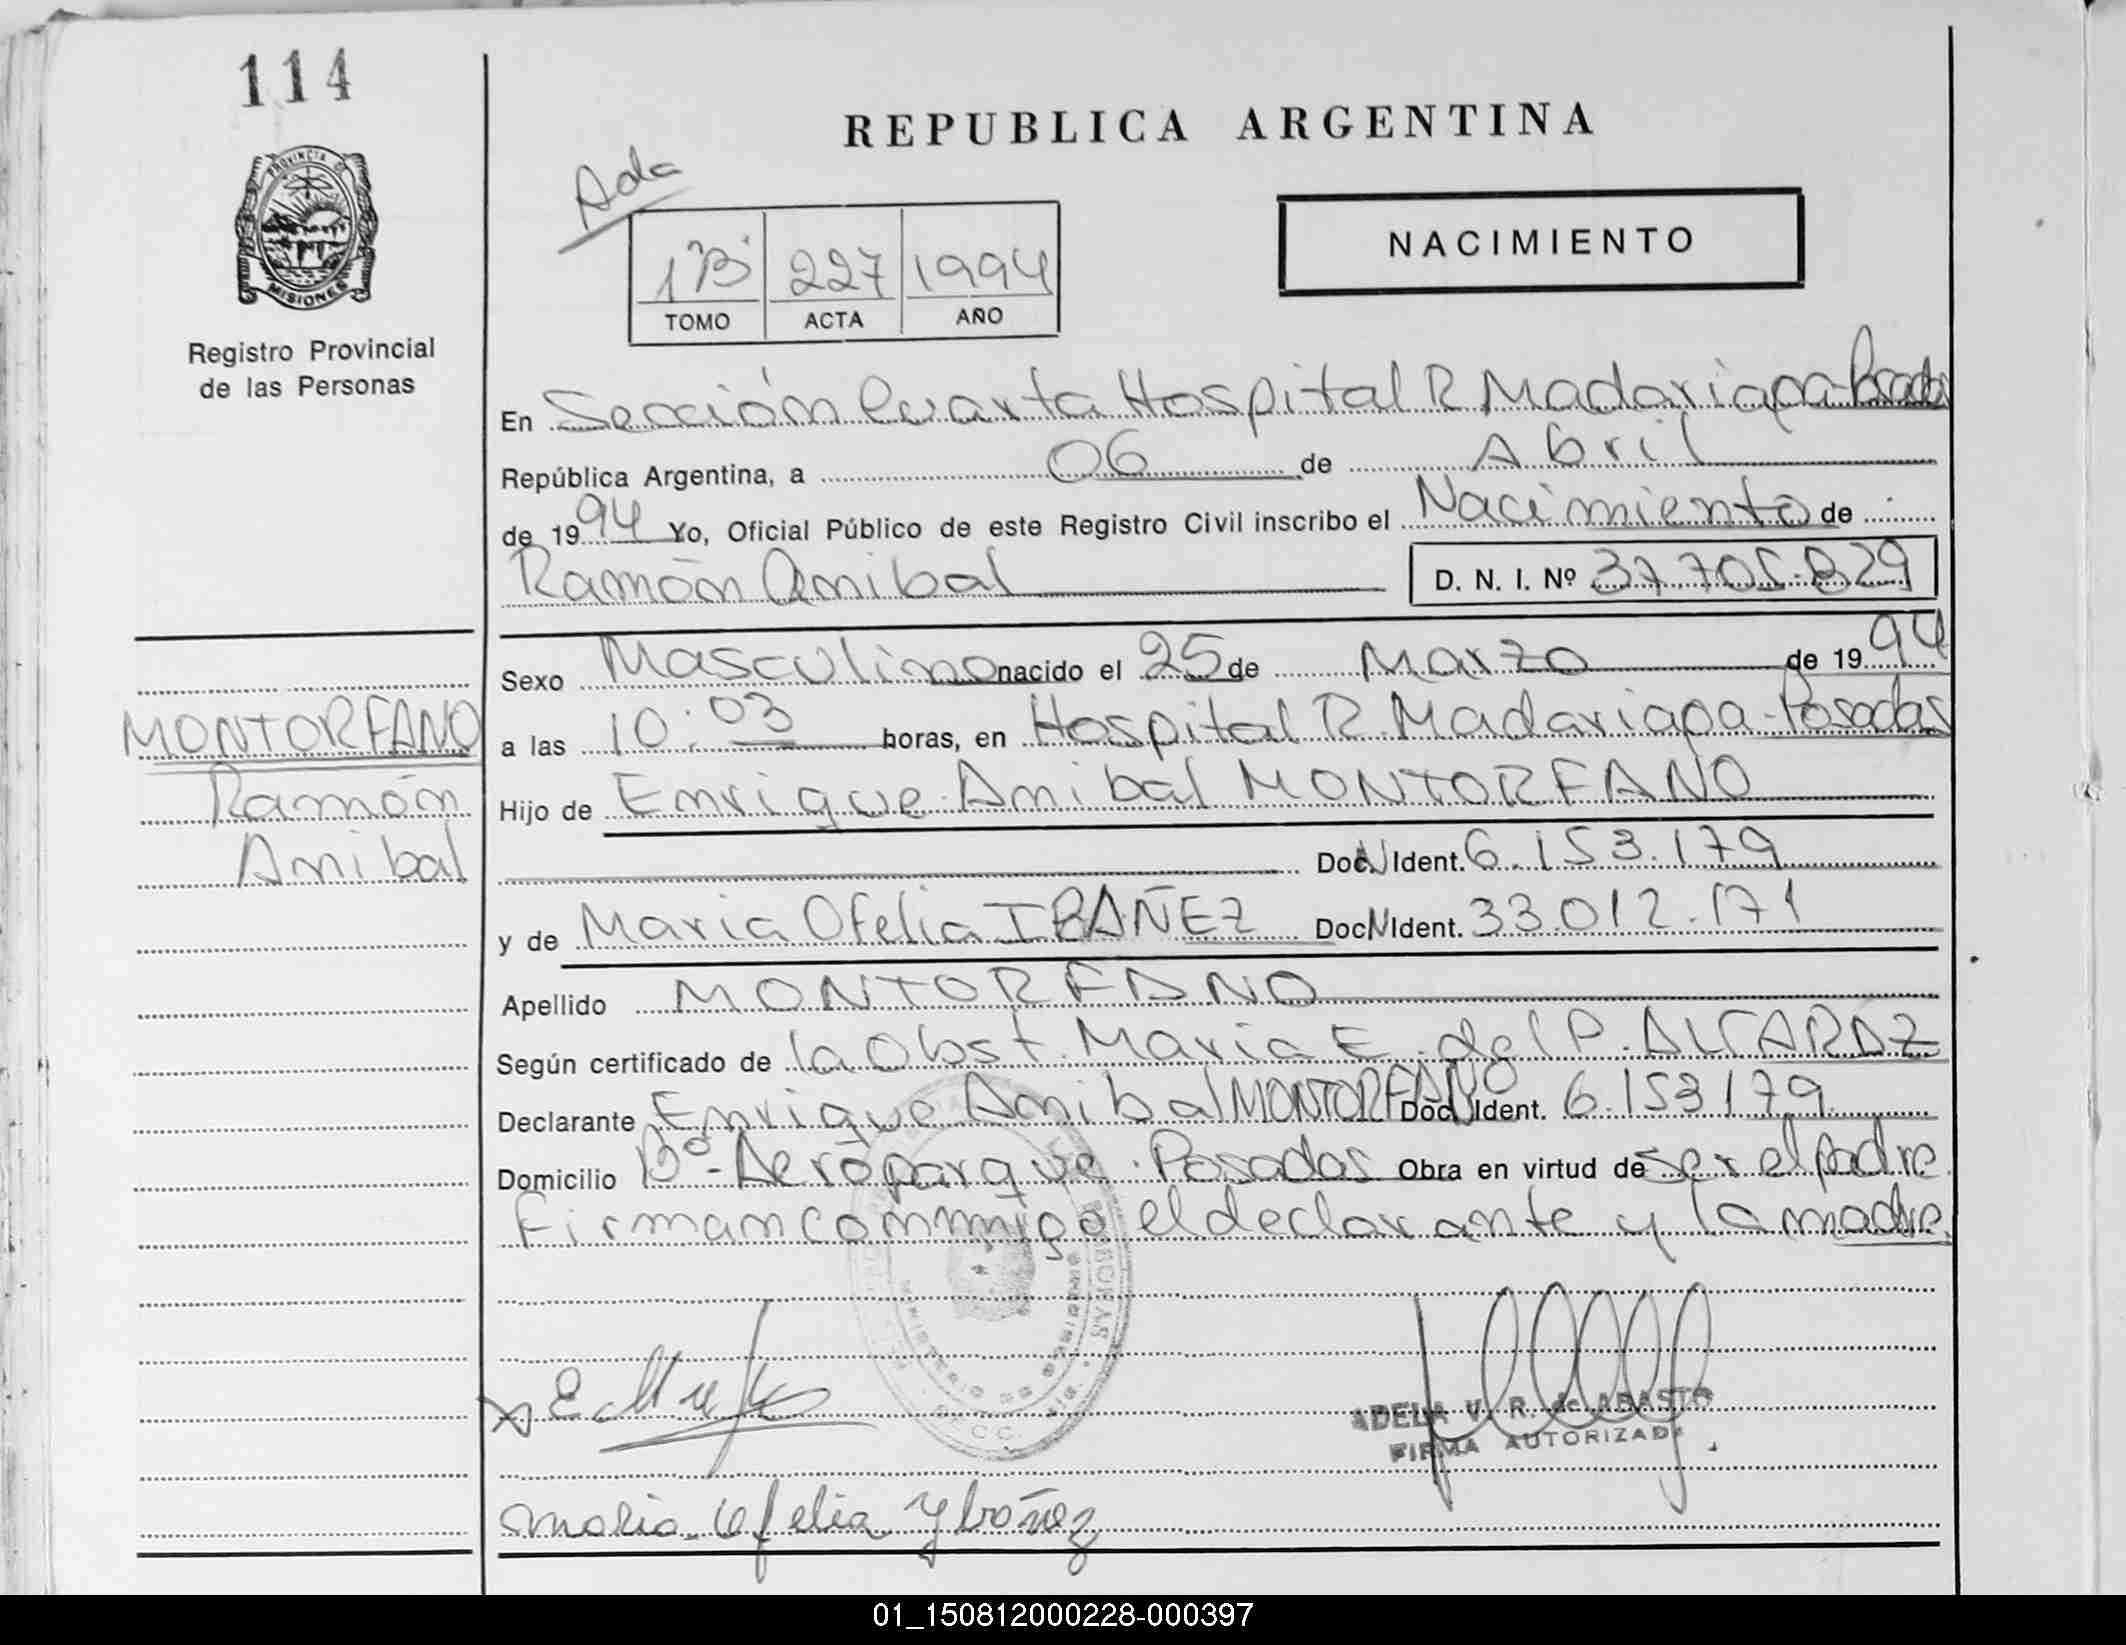 114
REPUBLICA ARGENTINA
PROVINCIA DE
MISIONES
Registro Provincial
de las Personas
Ada
1 "B" 227 1994
TOMO ACTA AÑO
NACIMIENTO
En Sección Cuarta Hospital R Madariaga-Posadas
República Argentina, a 06 de Abril
de 1994 Yo, Oficial Público de este Registro Civil inscribo el Nacimiento de
Ramón Anibal D. N. I. Nº 37.705.829
Sexo Masculino nacido el 25 de Marzo de 1994
MONTORFANO a las 10:03 horas, en Hospital R. Madariaga-Posadas
Ramón Hijo de Enrique Anibal MONTORFANO
Anibal Doc N Ident. 6.153.179
y de Maria Ofelia IBAÑEZ Doc N Ident. 33.012.171
Apellido MONTORFANO
Según certificado de la Obst. Maria E. del P. ALCARAZ
Declarante Enrique Anibal MONTORFANO Doc Ident. 6.153179
Domicilio Bº-Aeroparque. Posadas Obra en virtud de ser el padre.
Firman conmigo el declarante y la madre.
ADELA V. R. de ABASTO
FIRMA AUTORIZADA
Maria Ofelia Ybañez
01_150812000228-000397